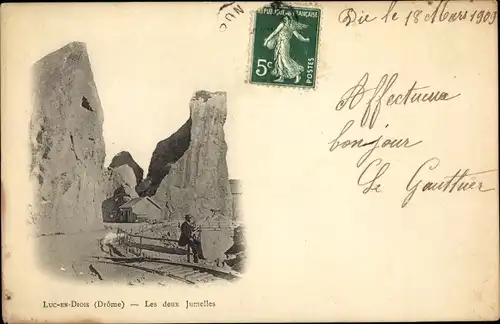 Die le 18 Mars 1903
RÉPUBLIQUE FRANÇAISE
5c
POSTES
Affectueux
bonjour
Le Gauthier
LUC-EN-DIOIS (Drôme) — Les deux Jumelles